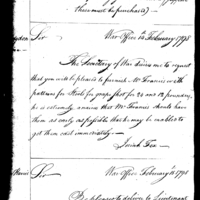 these must be purchased) —
Sir War Office 14 February 1798
The Secretary of War desires me to request
that you will be pleased to furnish Mr Francis with
patterns for Tools for guages fit for 24 and 12 pounders,
he is extremely anxious that Mr Francis should have
them as early as possible that he may be enabled to
get them cast immediately —
Josiah Fox
Harris Sir War Office February 1798
Be pleased to deliver to Lieutenant